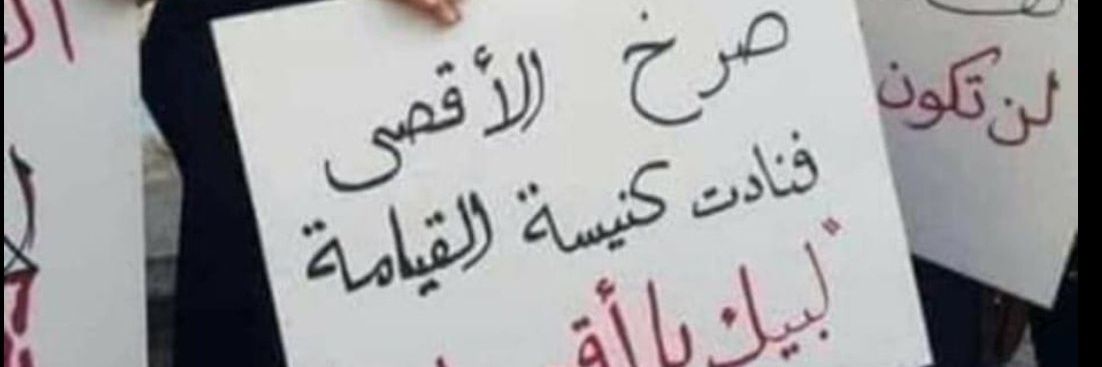 صرخ الأقصى
فنادت كنيسة القيامة
"لبيك يا
لن تكون